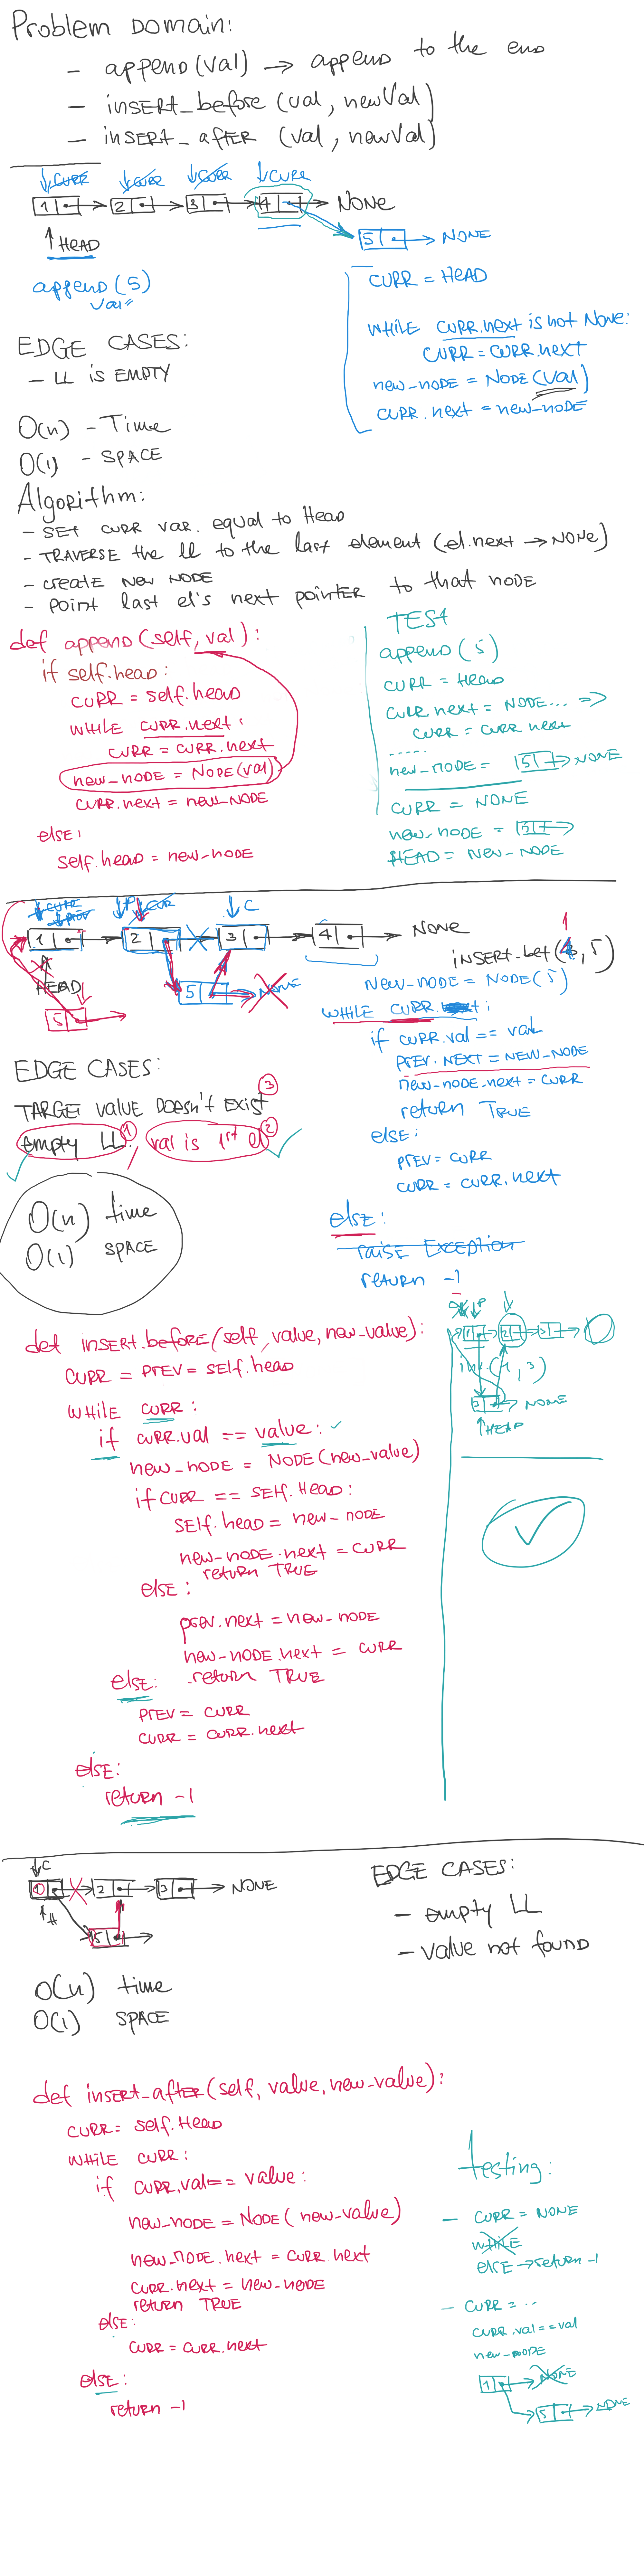 Problem Domain:
- append(val) → append to the end
- insert_before (val, newVal)
- insert_after (val, newVal)
↓CURR ↓CURR ↓CURR ↓CURR
1 2 3 4 → NONE
↑HEAD
5 → NONE
append(5)
val
CURR = HEAD
WHILE CURR.next is not None:
CURR = CURR.next
new-node = NODE(val)
CURR.next = new-node
EDGE CASES:
- LL is EMPTY
O(n) - Time
O(1) - SPACE
Algorithm:
- SET CURR VAR. equal to Head
- TRAVERSE the ll to the last element (el.next → NONE)
- create NEW NODE
- point last el's next pointer to that node
def append(self, val):
if self.head:
CURR = self.head
WHILE CURR.next:
CURR = CURR.next
new-node = NODE(val)
CURR.next = new-NODE
else:
self.head = new-node
TEST
append(5)
CURR = Head
CURR.next = NODE... ⇒
CURR = CURR.next
.....
new-NODE = 5 → NONE
CURR = NONE
new-node = 5 →
HEAD = NEW-NODE
↓CURR ↓PREV ↓P ↓CURR ↓C
1 2 3 4 → NONE
HEAD
5 → NONE
5
1
INSERT-bef( , 5)
New-NODE = NODE(5)
WHILE CURR :
if CURR.val == val
PREV.NEXT = NEW-NODE
new-node.next = CURR
return TRUE
else:
PREV = CURR
CURR = CURR.next
else:
raise Exception
return -1
EDGE CASES:
TARGET value Doesn't Exist 3
empty LL 1 val is 1st el 2
O(n) time
O(1) SPACE
def insert.before(self, value, new-value):
CURR = PREV = SELF.head
WHILE CURR:
if CURR.val == value:
new-node = NODE(new-value)
if CURR == SELF.Head:
SELF.head = new-node
new-node.next = CURR
return TRUE
else:
prev.next = new-node
new-NODE.next = CURR
return TRUE
else:
PREV = CURR
CURR = CURR.next
else:
return -1
1 2 3
3 → NONE
↑HEAD
↓C
1 2 3 → NONE
↑H
5
EDGE CASES:
- empty LL
- value not found
O(n) time
O(1) SPACE
def insert_after(self, value, new-value):
CURR = self.Head
WHILE CURR:
if CURR.val == value:
new-node = NODE(new-value)
new-NODE.next = CURR.next
CURR.next = new-NODE
return TRUE
else:
CURR = CURR.next
else:
return -1
testing:
- CURR = NONE
while
else → return -1
- CURR = ..
CURR.val == val
new-NODE
1 → NONE
5 → NONE